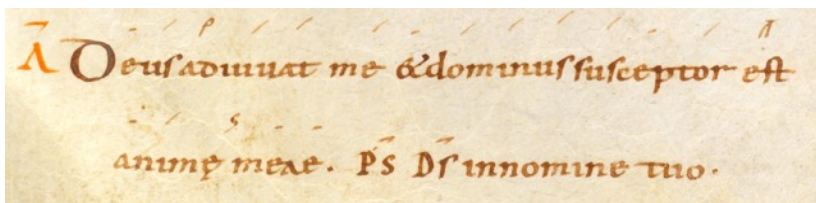 Ā Deus adiuuat me & dominus susceptor est
animę meae. P̄S D̄s in nomine tuo.